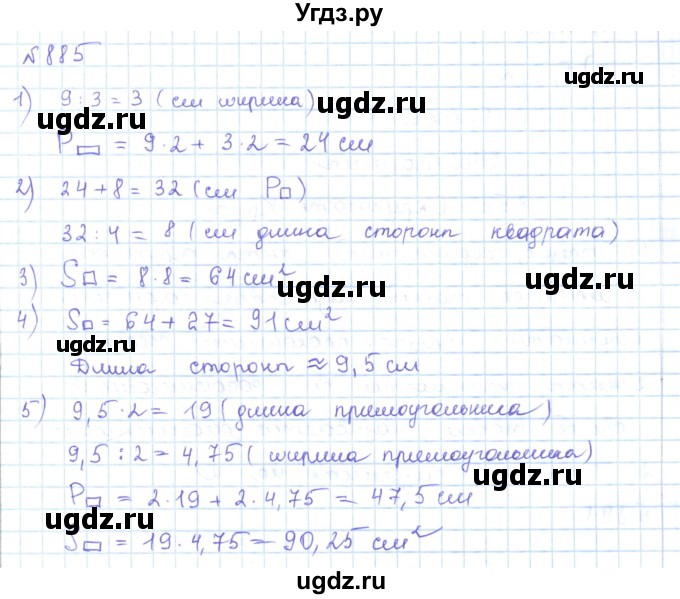 Угдз.ру
№885
1) 9 : 3 = 3 (см ширина)
ugdz.ru
ugdz.ru
P▭ = 9·2 + 3·2 = 24 см
2) 24 + 8 = 32 (см P□)
ugdz.ru
32 : 4 = 8 (см длина сторон квадрата)
3) S□ = 8·8 = 64 см²
ugdz.ru
ugdz.ru
4) S□ = 64 + 27 = 91 см²
ugdz.ru
Длина сторон ≈ 9,5 см
ugdz.ru
5) 9,5·2 = 19 (длина прямоугольника)
9,5 : 2 = 4,75 (ширина прямоугольника)
ugdz.ru
P▭ = 2·19 + 2·4,75 = 47,5 см
ugdz.ru
ugdz.ru
S▭ = 19·4,75 = 90,25 см²
ugdz.ru